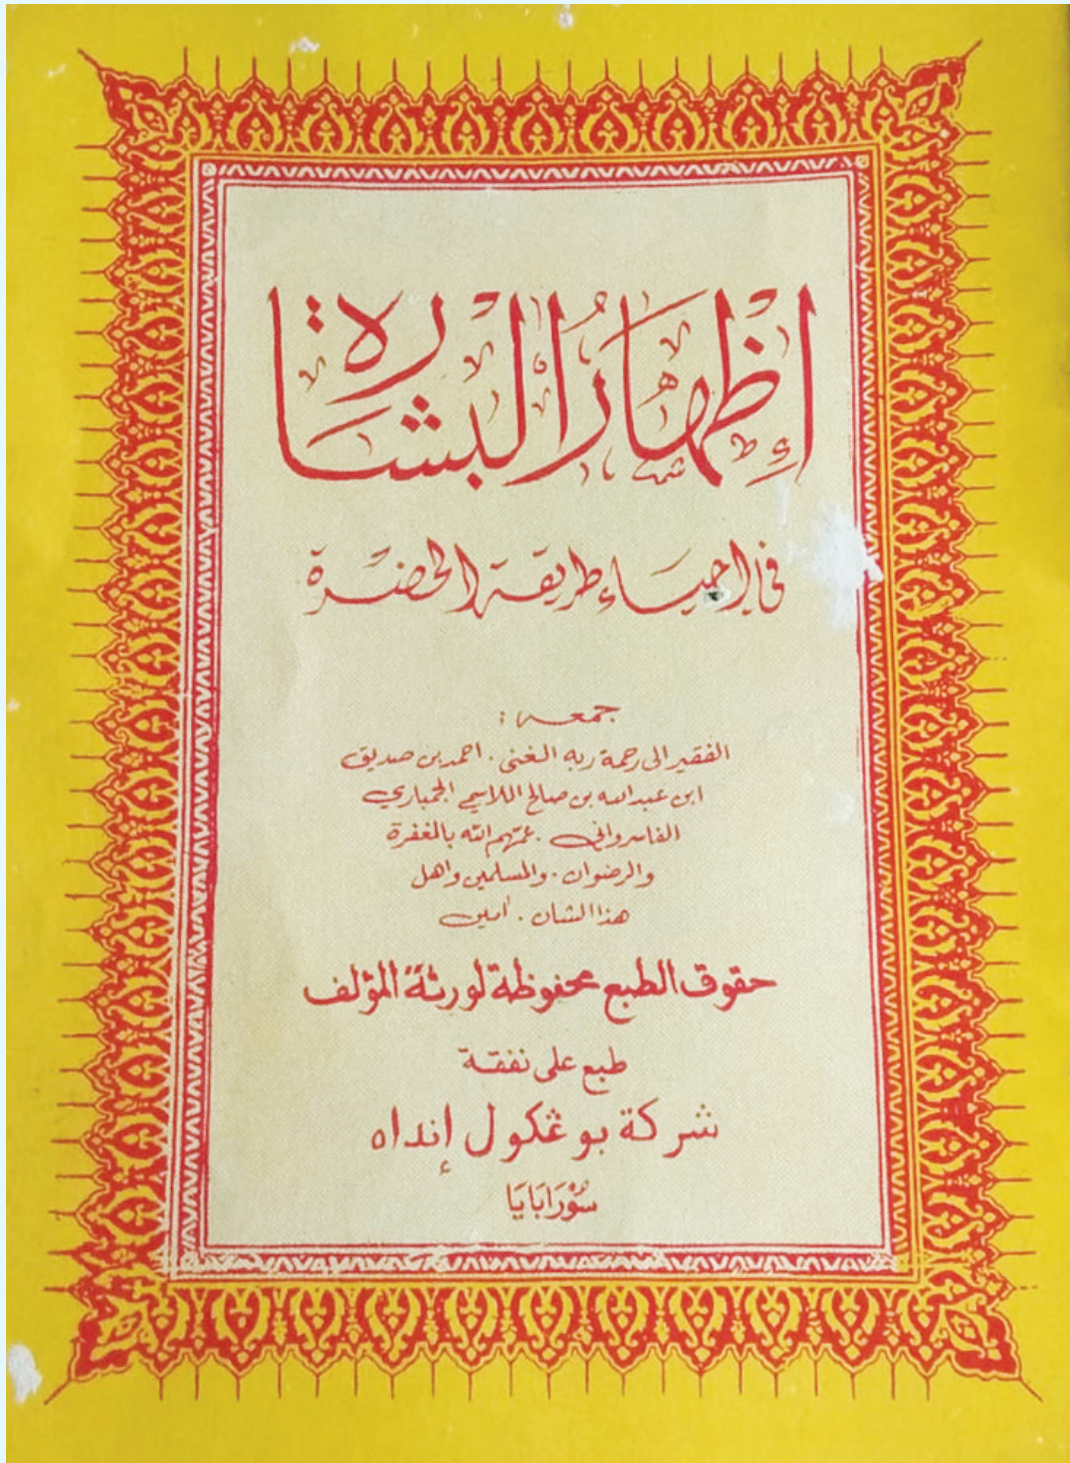 إِظْهَارُ الْبَشَارَة
في إحياء طريقة الحضرة
جمعه :
الفقير الى رحمة ربه الغنى . احمد بن صديق
ابن عبدالله بن صالح اللاسمي الجمباري
الفاسرواني . عمّهم الله بالمغفرة
والرضوان . والمسلمين واهل
هذا الشان . آمين
حقوق الطبع محفوظة لورثة المؤلف
طبع على نفقة
شركة بوڠكول إنداه
سُوْرَابَايَا